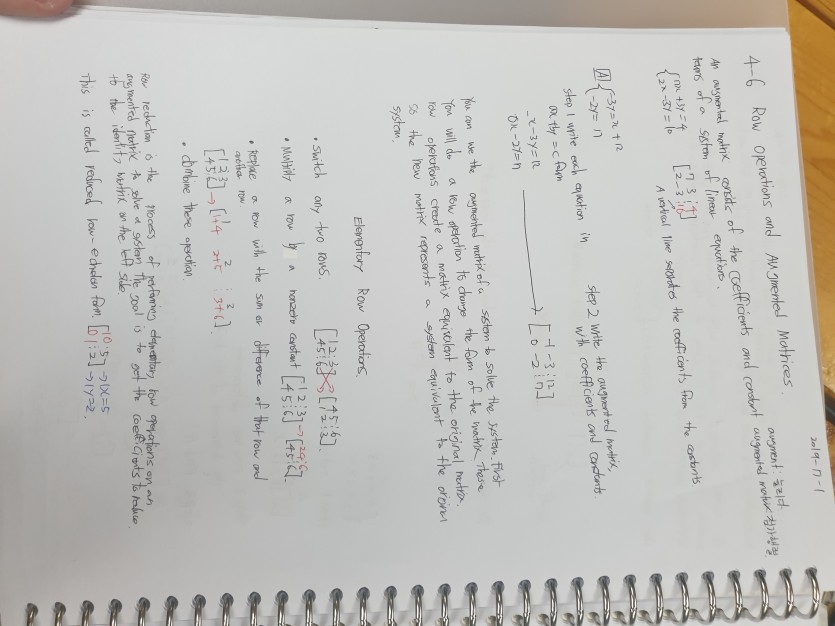 2019-11-1
4-6 Row Operations and Augmented Matrices.
augment: 늘리다.
An augmented matrix consists of the coefficients and constant
augmented matrix:
terms of a system of linear equations.
[7 3 ⋮ 4]
2x-3y=10 [2 -3 ⋮ 10]
A vertical line separates the coefficients from the constants
[A] { -3y=x+12
-2y=
step 1 write each equation in
ax+by=c form
step 2 write the augmented matrix,
with coefficients and constants.
-x-3y=12
0x-2y= → [-1 -3 ⋮ 12]
[0 -2 ⋮ ]
You can use the augmented matrix of a system to solve the system. First
You will do a row operation to change the form of the matrix. These
row operations create a matrix equivalent to the original matrix.
so the new matrix represents a system equivalent to the original
system.
Elementary Row Operations.
• Switch any two rows. [1 2 ⋮ 3] [4 5 ⋮ 6]
[4 5 ⋮ 6] → [1 2 ⋮ 3].
• Multiply a row by a nonzero constant [1 2 ⋮ 3] → [2 4 ⋮ 6]
[4 5 ⋮ 6] [4 5 ⋮ 6].
• Replace a row with the sum or difference of that row and
another row
[1 2 ⋮ 3] → [1 2 ⋮ 3]
[4 5 ⋮ 6] [1+4 2+5 ⋮ 3+6].
• Combine these operation
Row reduction is the process of performing elementary row operations on an
augmented matrix to solve a system. The goal is to get the coefficients to reduce
to the identity matrix on the left side
This is called reduced row-echelon form. [1 0 ⋮ 5] → 1x=5
[0 1 ⋮ 2] → 1y=2.